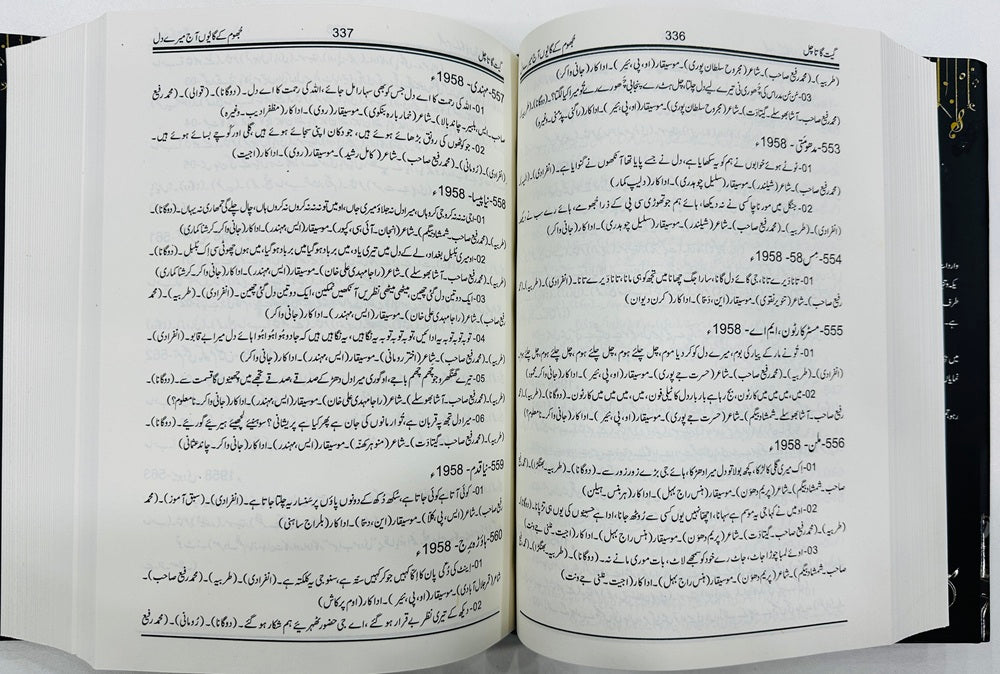 گیت گاتا چل 336 جُھوم کے گایوں آج میرے دل
(طربیہ)۔ (محمد رفیع صاحب)۔ شاعر (مجروح سلطان پوری)۔ موسیقار (او، پی، نیر)۔ اداکار (جانی واکر)
(محمد رفیع صاحب۔ آشا بھوسلے۔ گیتا دَت)۔ شاعر (مجروح سلطان پوری)۔ موسیقار (او، پی، نیر)۔ اداکار
553- مدھومتی - 1958ء
01- ٹوٹے ہوئے خوابوں نے ہم کو یہ سکھایا ہے، دل نے جسے پایا تھا آنکھوں نے گنوایا ہے۔ (انفرادی)۔
صاحب)۔ شاعر (شیلندر)۔ موسیقار (سلیل چوہدری)۔ اداکار (دلیپ کمار)
02- جنگل میں مور ناچا کسی نے نہ دیکھا، ہائے ہم جو تھوڑی سی پی کے ذرا جُھومے، ہائے رے سب نے دیکھا
(انفرادی)۔ (طربیہ)۔ (محمد رفیع صاحب)۔ شاعر (شیلندر)۔ موسیقار (سلیل چوہدری)۔ اداکار (جانی واکر)
554- مس 58- 1958ء
01- تنا ویرے تانا، جی گائے دل گانا، سارا جگ چھانا میں تجھ کو ہی مانا، تنا ویرے تانا۔ (انفرادی)۔ (طربیہ)۔
صاحب)۔ شاعر (تنویر نقوی)۔ موسیقار (این، دَتا)۔ اداکار (کرن دیوان)
555- مسٹر کارٹون، ایم اے - 1958ء
01- تُو نے مار کے پیار کی بوم، میرے دل کو کر دیا موم، چل چلیے ہوم، چل چلیے ہوم، چل چلیے ہوم
(انفرادی)۔ (طربیہ)۔ (محمد رفیع صاحب)۔ شاعر (حسرت جے پوری)۔ موسیقار (او، پی، نیر)۔ اداکار (جانی واکر)
02- میں، میں، میں، میں کارٹون، بج رہا ہے بار بار دل کا ٹیلی فون، میں، میں، میں کارٹون۔ (دوگانا)۔ (طربیہ)۔
رفیع صاحب۔ آشا بھوسلے۔ شمشاد بیگم)۔ شاعر (حسرت جے پوری)۔ موسیقار (او، پی، نیر)۔ اداکار (جانی واکر۔ نامعلوم)
556- ملن - 1958ء
01- اک میری گلی کا لڑکا، کچھ بولا تو دل میرا دھڑکا، ہائے جی بڑے زور زور سے۔ (دوگانا)۔ (طربیہ۔ بھنگڑا)۔ (محمد رفیع
صاحب۔ شمشاد بیگم)۔ شاعر (پریم دھون)۔ موسیقار (ہنس راج بہل)۔ اداکار
02- او میں نے کہا جی یہ موسم ہے سہانا، اچھا نہیں یوں کسی سے روٹھ جانا، ادا ہے حسینوں کی یوں ہی تڑپانا۔
(طربیہ)۔ (محمد رفیع صاحب۔ گیتا دَت)۔ شاعر (پریم دھون)۔ موسیقار (ہنس راج بہل)۔ اداکار (اجیت۔
03- اوئے لمبا چوڑا جاٹ، جاٹ رے خود کو سمجھے لاٹ، بات موری مانے نہ۔ (دوگانا)۔ (طربیہ۔ بھنگڑا)۔
شمشاد بیگم)۔ شاعر (پریم دھون)۔ موسیقار (ہنس راج بہل)۔ اداکار (اجیت۔
گیت گاتا چل 337 جُھوم کے گایوں آج میرے دل
557- مہندی - 1958ء
01- اللہ کی رحمت کا اے دل جس کو بھی سہارا مل جائے، اللہ کی رحمت کا اے دل۔ (دوگانا)۔ (قوالی)۔ (محمد رفیع
صاحب۔ ایس، بلبیر۔ چاند بالا)۔ شاعر (خمار بارہ بنکوی)۔ موسیقار (روی)۔ اداکار (مظفر ادیب۔ وغیرہ)
02- جو کوٹھوں کی رونق بڑھائے ہوئے ہیں، جو دکان اپنی سجائے ہوئے ہیں، گلی اور کوچے بسائے ہوئے ہیں۔
(انفرادی)۔ (رُومانی)۔ (محمد رفیع صاحب)۔ شاعر (کامل رشید)۔ موسیقار (روی)۔ اداکار (اجیت)
558- نیا پیسا - 1958ء
(طربیہ)۔ (محمد رفیع صاحب۔ شمشاد بیگم)۔ شاعر (انجان۔ آئی سی، کپور)۔ موسیقار (ایس، مہندر)۔ اداکار (جانی واکر۔ کرشنا کماری)
02- او میری بُلبل بغداد، لے کے دل میں تیری یاد، میں برباد ہو گیا میں برباد ہو گیا، میں ہوں چھوٹی سی اک بُلبل۔ (دوگانا)۔
(طربیہ)۔ (محمد رفیع صاحب۔ آشا بھوسلے)۔ شاعر (راجا مہدی علی خان)۔ موسیقار (ایس، مہندر)۔ اداکار (جانی واکر۔ کرشنا کماری)
03- ایک دو تین دل گئی چھین، میٹھی میٹھی نظریں آنکھیں نمکین، ایک دو تین دل گئی چھین۔ (انفرادی)۔ (طربیہ)۔ (محمد
رفیع صاحب)۔ شاعر (راجا مہدی علی خان)۔ موسیقار (ایس، مہندر)۔ اداکار (جانی واکر)
04- توبہ توبہ توبہ یہ ادائیں، توبہ توبہ توبہ یہ نگاہیں، یہ نگاہیں ہیں کہ جادو اوہو اوہو اوہو ہائے دل میرا بے قابو۔ (انفرادی)۔
(طربیہ)۔ (محمد رفیع صاحب)۔ شاعر (اختر رومانی)۔ موسیقار (ایس، مہندر)۔ اداکار (جانی واکر)
05- تیرے گھنگھرو جو چھم چھم باجے، او گوری میرا دل دھڑکے صدقے، صدقے تجھے میں چھینوں گا قسمت سے۔ (دوگانا)۔
(طربیہ)۔ (محمد رفیع صاحب۔ آشا بھوسلے)۔ شاعر (راجا مہدی علی خان)۔ موسیقار (ایس، مہندر)۔ اداکار (جانی واکر۔ نامعلوم؟)
06- میرا دل تجھ پہ قربان ہے، تُو ارمانوں کی جان ہے پھر کیا ہے پریشانی؟
(طربیہ)۔ (محمد رفیع صاحب۔ گیتا دَت)۔ شاعر (منوہر کھنہ)۔ موسیقار (ایس، مہندر)۔ اداکار (جانی واکر۔ چاند عثمانی)
559- نیا قدم - 1958ء
01- کوئی آتا ہے کوئی جاتا ہے، سُکھ دُکھ کے دونوں پاؤں پر سنسار یہ چلتا جاتا ہے۔ (انفرادی)۔ (سبق آموز)۔ (محمد
رفیع صاحب)۔ شاعر (ایس، پی، کلا)۔ موسیقار (این، دتا)۔ اداکار (بلراج ساہنی)
560- ہاؤڑہ برج - 1958ء
01- اینٹ کی دُکی پان کا اِکّا کہیں جوکر کہیں ستہ ہے، سنو جی یہ کلکتہ ہے۔ (انفرادی)۔ (طربیہ)۔ (محمد رفیع صاحب)۔
شاعر (قمر جلال آبادی)۔ موسیقار (او، پی، نیر)۔ اداکار (اوم پرکاش)
02- دیکھ کے تیری نظر بے قرار ہو گئے، اے جی حضور ٹھہریے ہم شکار ہو گئے۔ (دوگانا)۔ (رُومانی)۔ (محمد رفیع